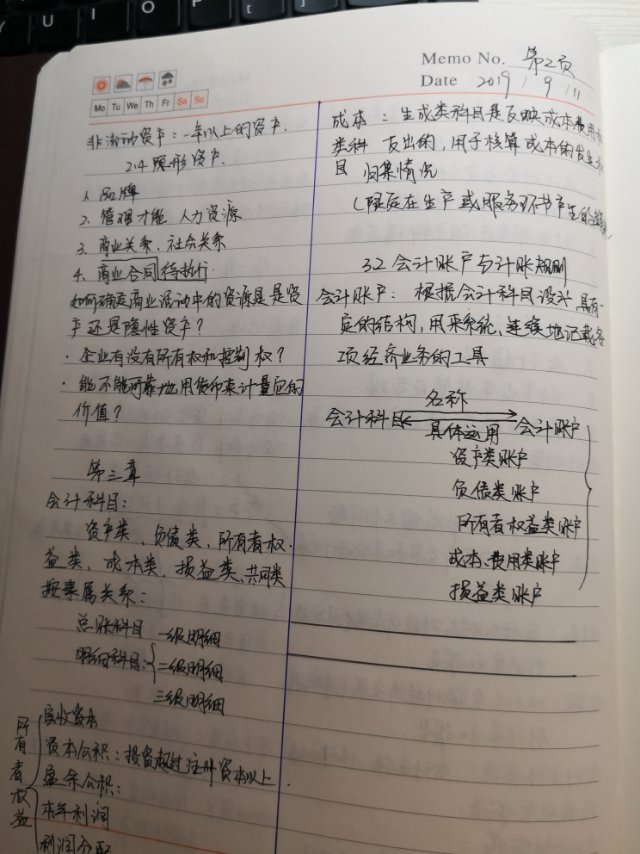 Y U I O P
Memo No. 第2页
Date 2019 / 9 / 11
Mo Tu We Th Fr Sa Su
非流动资产：一年以上的资产.
2.4 隐形资产.
1. 品牌
2. 管理才能 人力资源
3. 商业关系、社会关系
4. 商业合同待执行
如何确定商业活动中的资源是是资
产还是隐性资产？
· 企业有没有所有权和控制权？
· 能不能可靠地用货币来计量它的
价值？
第三章
会计科目：
资产类、负债类、所有者权
益类、成本类、损益类、共同类
按隶属关系：
总账科目 一级明细
明细科目： 二级明细
三级明细
所有者权益
实收资本
资本公积：投资超过注册资本以上.
盈余公积：
本年利润
利润分配
成本：生成类科目是反映成本费用和
类科 支出的，用于核算成本的发生和
目 归集情况
(限定在生产或服务环节产生的
3.2 会计账户与计账规则
会计账户：根据会计科目设立 具有一
定的结构，用来系统、连续地记载各
项经济业务的工具
名称
会计科目 会计账户
具体运用
资产类账户
负债类账户
所有者权益类账户
成本、费用类账户
损益类账户